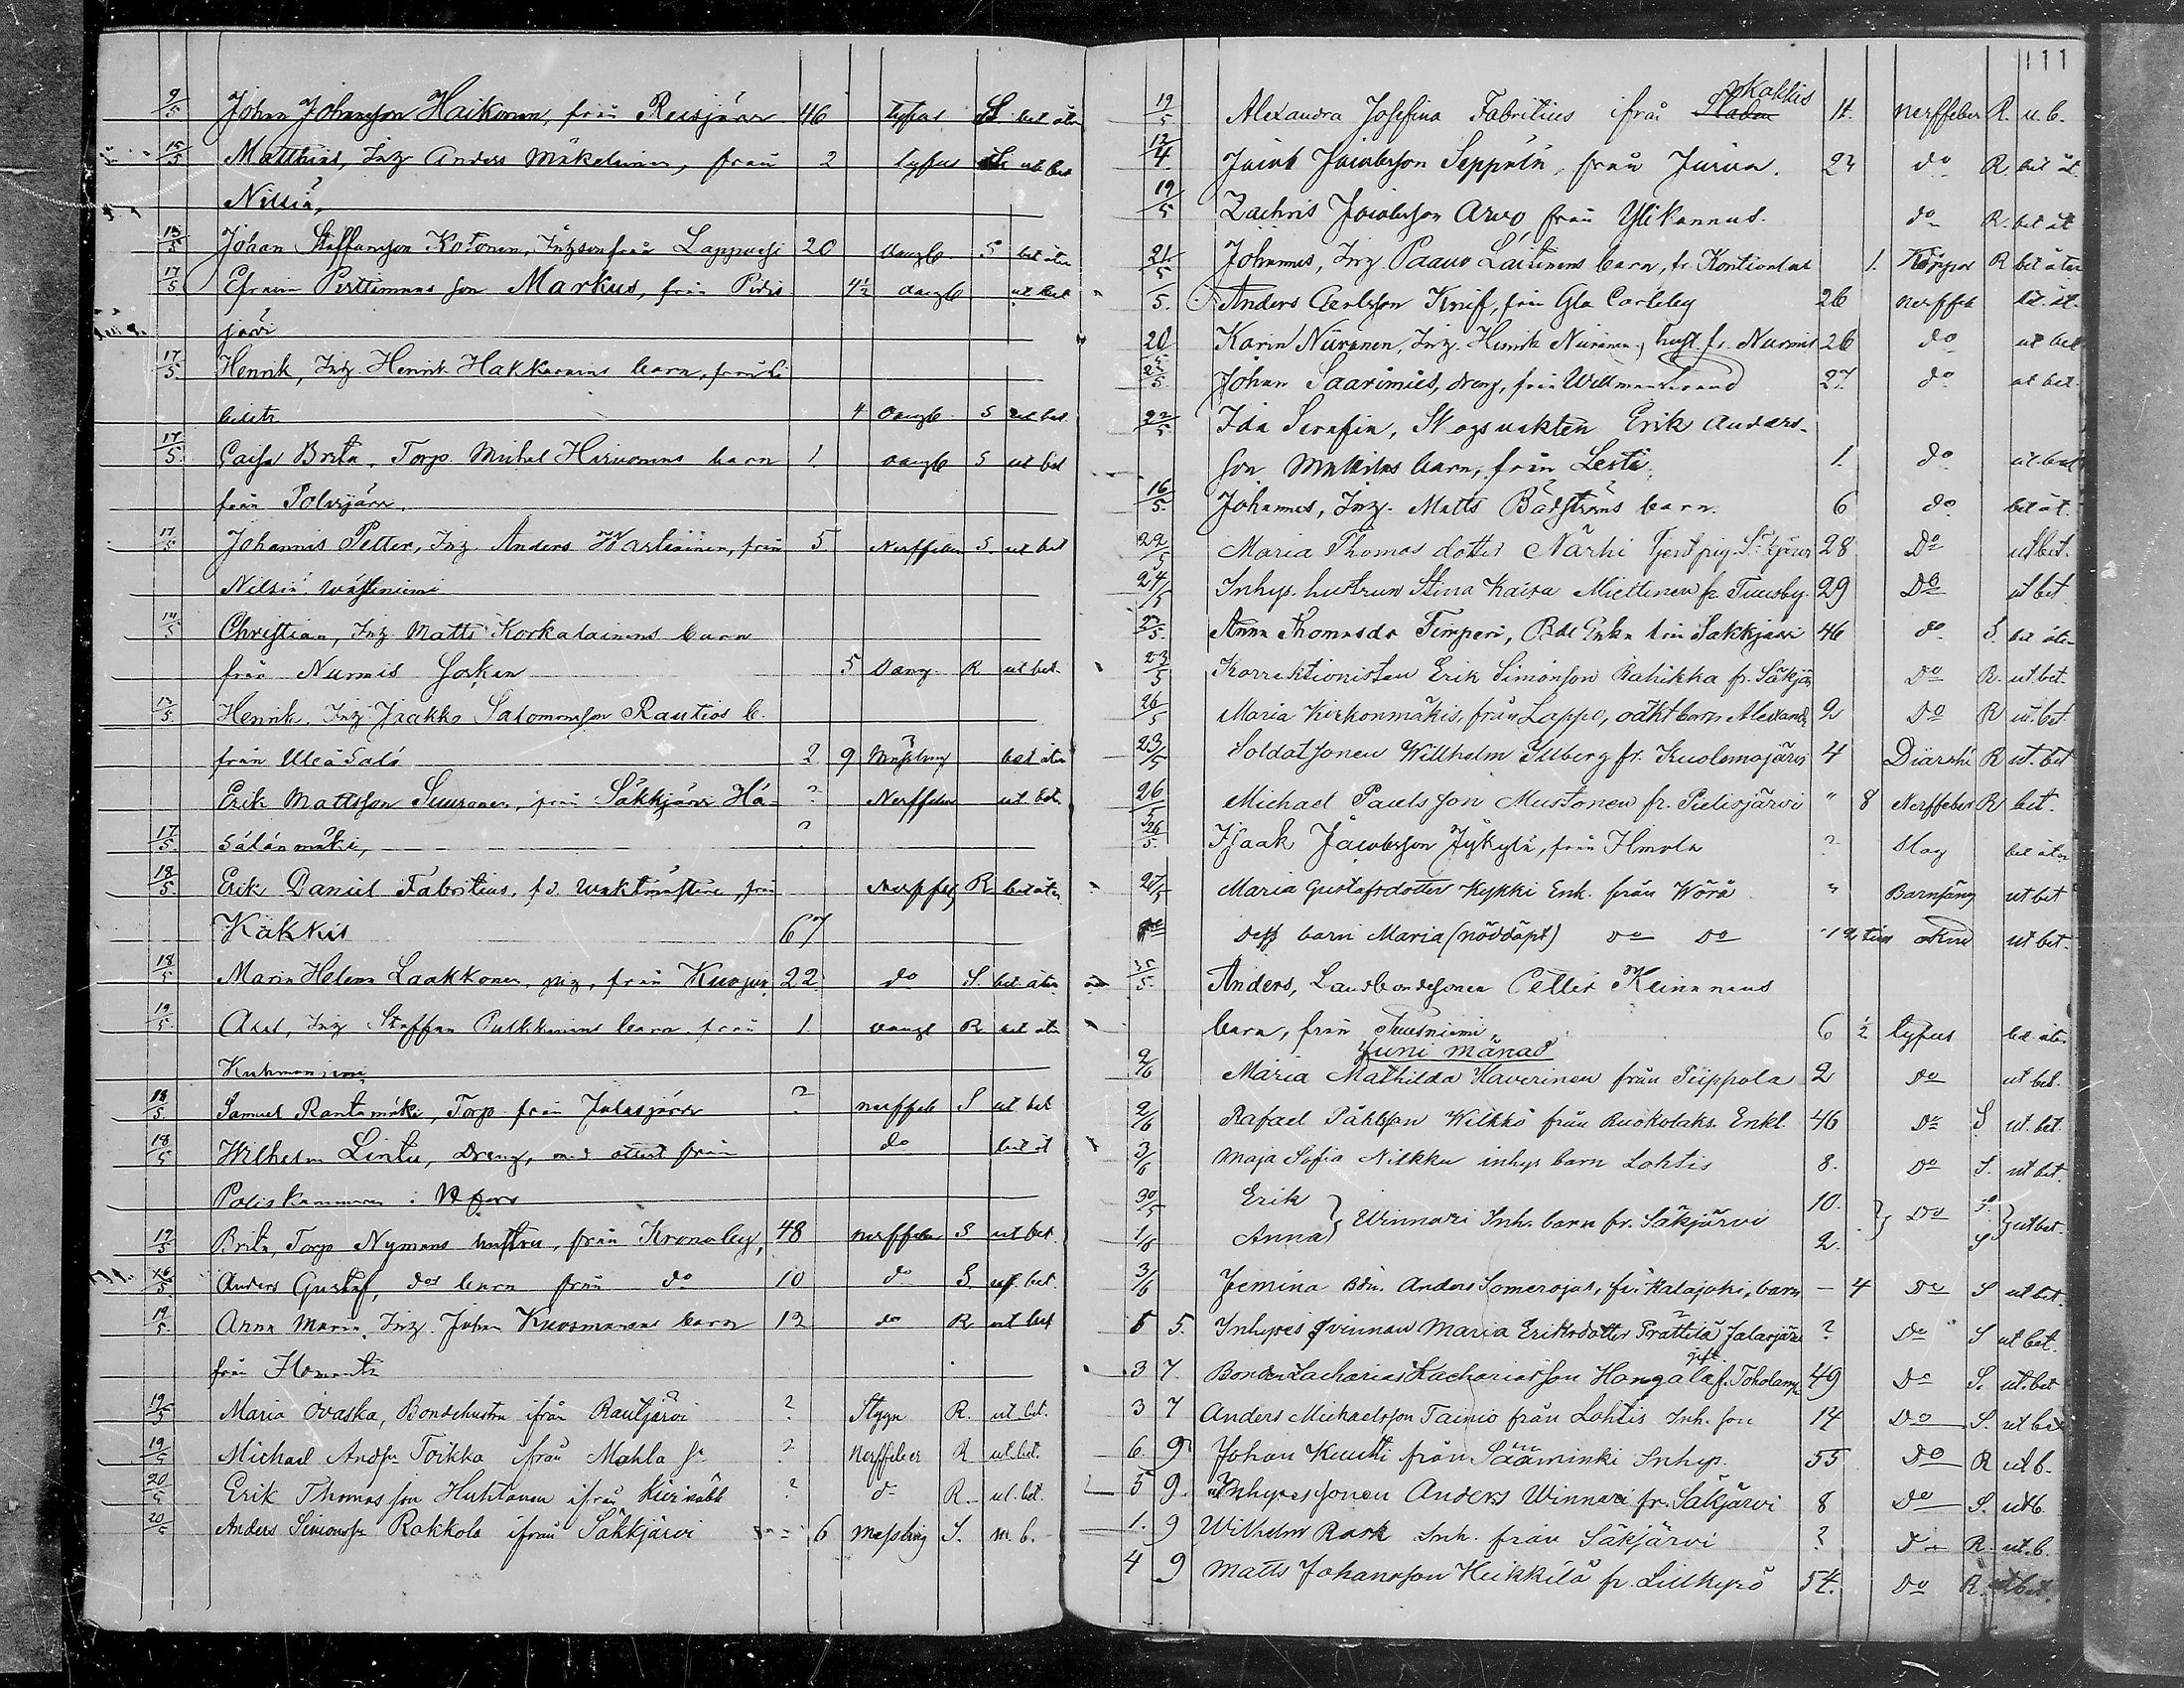 9/5 Johan Johansson Haikonen, från Reisjärvi 46 tyfus S. bet åter
15/5 Matthias, Inz Anders Mäkeläinen, från 2 tyfus ut bet
Nilsiä,
15/5 Johan Staffansson Kotonen, Inzson från Lappvesi 20 S bet åter
17/5 Efraim Perttinens son Markus, från Pidis 4½ ut bet
järvi
17/5 Henrik, Inz Henrik Hakkarainens barn, från
4 S ut bet
17/5 Caisa Brita, Torp. Michel Hirvonens barn 1. S ut bet
från Polvijärvi.
17/5 Johannis Petter, Inz. Anders Wartiainen, från 5. Nerffeber S. ut bet
Nilsiä
14/5 Christian, Inz Matts Korkalainens barn
från Nurmis Socken 5 R ut bet.
17/5 Henrik, Inz Jaakko Salomonsson Rautios b.
från Uleå Salo 2 9 Mässling bet åter
Erik Mattsson Suuronen, från Säkkjärvi Hä- ? Nerffeber ut bet.
17/5 sälänmäki, ?
18/5 Erik Daniel Fabritius, f.d. waktmästare, från Nerffeb R bet åter
Kakkis 67
18/5 Maria Helena Laakkonen, pig, från Kuopio 22 do S. bet åter
19/5 Axel, Inz Staffan Pulkkinens barn från 1 R bet åter
Kuhmoniemi
18/5 Samuel Rantamäki, Torp från Jalasjärvi ? nerffeb S ut bet
18/5 Wilhelm Lintu, Dreng, med attest från do bet åt
Poliskammaren i Hfors
19/5 Brita, Torp Nymans hustru, från Kronoby, 48 nerffeber S ut bet.
16/5 Anders Gustaf, dess barn från do 10 do S. ut bet.
19/5 Anna Maria, Inz. Johan Kuosmanens barn 12 do R ut bet
från Ilomants
19/5 Maria Ovaska, Bondehustru ifrån Rautjärvi ? Stygn R. ut bet.
19/5 Michael Andsn Toikka ifrån Mohla Sn ? Nerffeber R ut bet.
20/5 Erik Thomasson Huhtanen ifrån Kivinäbb ? do R. ut. bet.
20/5 Anders Simonsson Rakkola ifrån Säkkjärvi 6 Messling S. ut. b.
111
19/5 Alexandra Josefina Fabritius ifrån Staden Kakkis 11. nerffeber R. u. b.
12/4 Jacob Jacobsson Seppälä, från Jurva. 23 do R. bet åt.
19/5 Zachris Jacobsson Arvo från Ylikannus. do R. bet åt
21/5 Johannes, Inz. Paavo Laitinens barn, fr. Kontiolaks 1. Koppor R bet åter
/5. Anders Carlsson Knif, från Gla Carleby 26 nerffeb bet åt.
20/5 Karin Niiranen, Inz. Henrik Niiranens hust. fr. Nurmis 26 do ut bet
22/5 Johan Saarimies, dreng, från Willmanstrand 27. do ut bet.
22/5 Ida Serafia, Skogsvakten Erik Anders-
son barn, från Lesti 1. do ut. bet
16/5 Johannes, Inz. Matts Bäcströms barn. 6 do bet åt.
22/5 Maria Thomas dotter Närhi Tjenstpig. Säkjärvi 28 Do ut bet.
24/5 Inhys. hustrun Stina Kaisa Miettinen fr. Tuusby 29 Do ut bet
23/5. Anna Thomasdr Timperi, Bde Enka från Säkkjärvi 46 do S. bet åter
23/5 Korrektionisten Erik Simonsson Rahikka fr. Säkjär Do R. ut. bet.
26/5 Maria Kirkonmäkis, från Lappo, oäkt barn Alexand 2 Do R ut. bet.
23/5 Soldatsonen Willhelm Silberg fr. Kuolemajärvi 4 Diarrhé R ut. bet
26/5 Michael Paulsson Mustonen fr. Pielisjärvi " 8 Nerffeber R bet.
26/5. Isaak Jacobsson Jykylä, från Ilmola ? Slag bet åter
27/5 Maria Gustafsdotter Kykki Enk. från Wörå " Barnsäng ut bet
do dess barn Maria (nöddöpt) do do 12 tim ut bet.
25/5. Anders, Landbondesonen Petter Keinänens
barn, från Tuusniemi 6 ½ tyfus bet åter
Juni månad
2/6 Maria Mathilda Haverinen från Piippola 2 do ut bet.
2/6 Rafael Påhlsson Wilkko från Ruokolaks. Enkl. 46 Do S ut. bet.
3/6 Maja Sofia Nikku inhys barn Lohtis 8. Do S. ut bet.
30/5 Erik 10. S.
} Winnari Inh. barn fr. Säkjärvi } Do } ut bet.
1/6 Anna 2. S
3/6 Jemina Bdn. Anders Somerojas, fr. Kalajoki, barn – 4 Do S ut bet.
5 5. Inhyses qvinnan Maria Eriksdotter Prättilä Jalasjärv ? Do S ut bet.
3 7. Bonden Zacharias Zachariasson Hangala gift f. Toholamp 49 Do S. ut bet
3 7 Anders Michaelsson Tainio från Lohtis Inh. son 14 Do S. ut bet
6. 9 Johan Kuutti från Sääminki Inhys. 55 Do R ut b.
5 9. Inhysessonen Anders Winnari fr. Säkjärvi 8 Do S. ut b.
1. 9 Wilhelm Rask Inh. från Säkjärvi ? Do R. ut. b.
4 9 Matts Johansson Heikkilä fr. Lillkyro 54. Do R. ut bet.